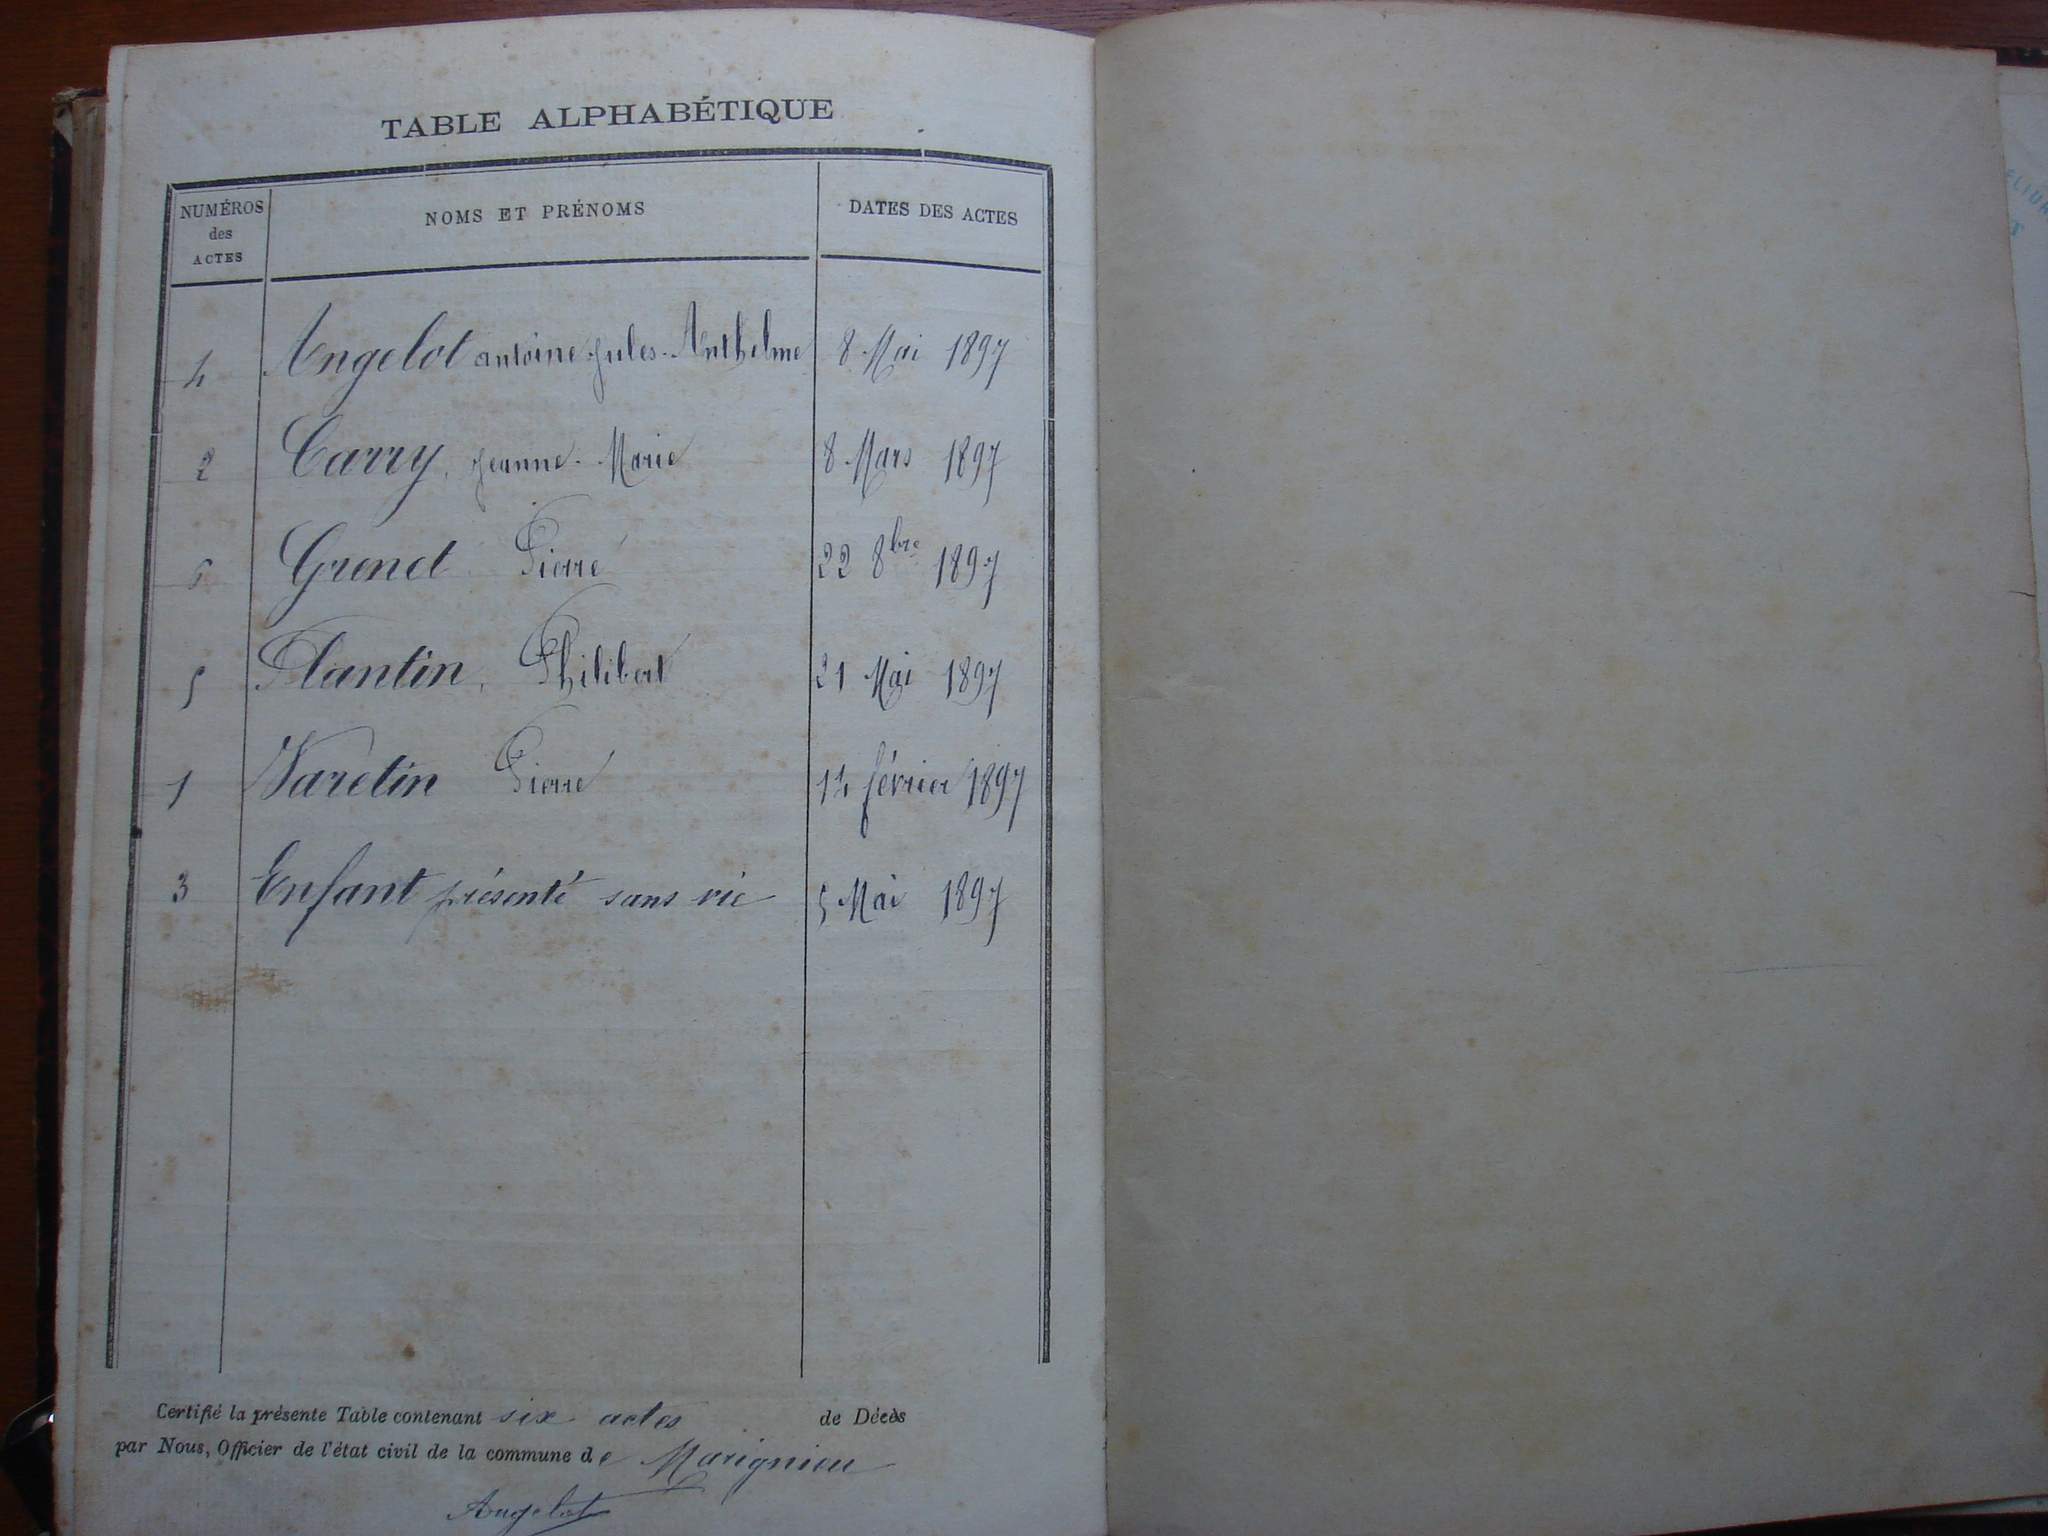 TABLE ALPHABÉTIQUE
NUMÉROS des ACTES NOMS ET PRÉNOMS DATES DES ACTES
4 Angelot antoine Jules-Anthelme 8 Mai 1897
2 Carry, Jeanne-Marie 8 Mars 1897
6 Grenet Pierre 22 8bre 1897
5 Plantin, Philibert 21 Mai 1897
1 Varetin Pierre 14 février 1897
3 Enfant présenté sans vie 5 Mai 1897
Certifié la présente Table contenant six actes de Décès
par Nous, Officier de l'état civil de la commune de Marignieu
Angelot